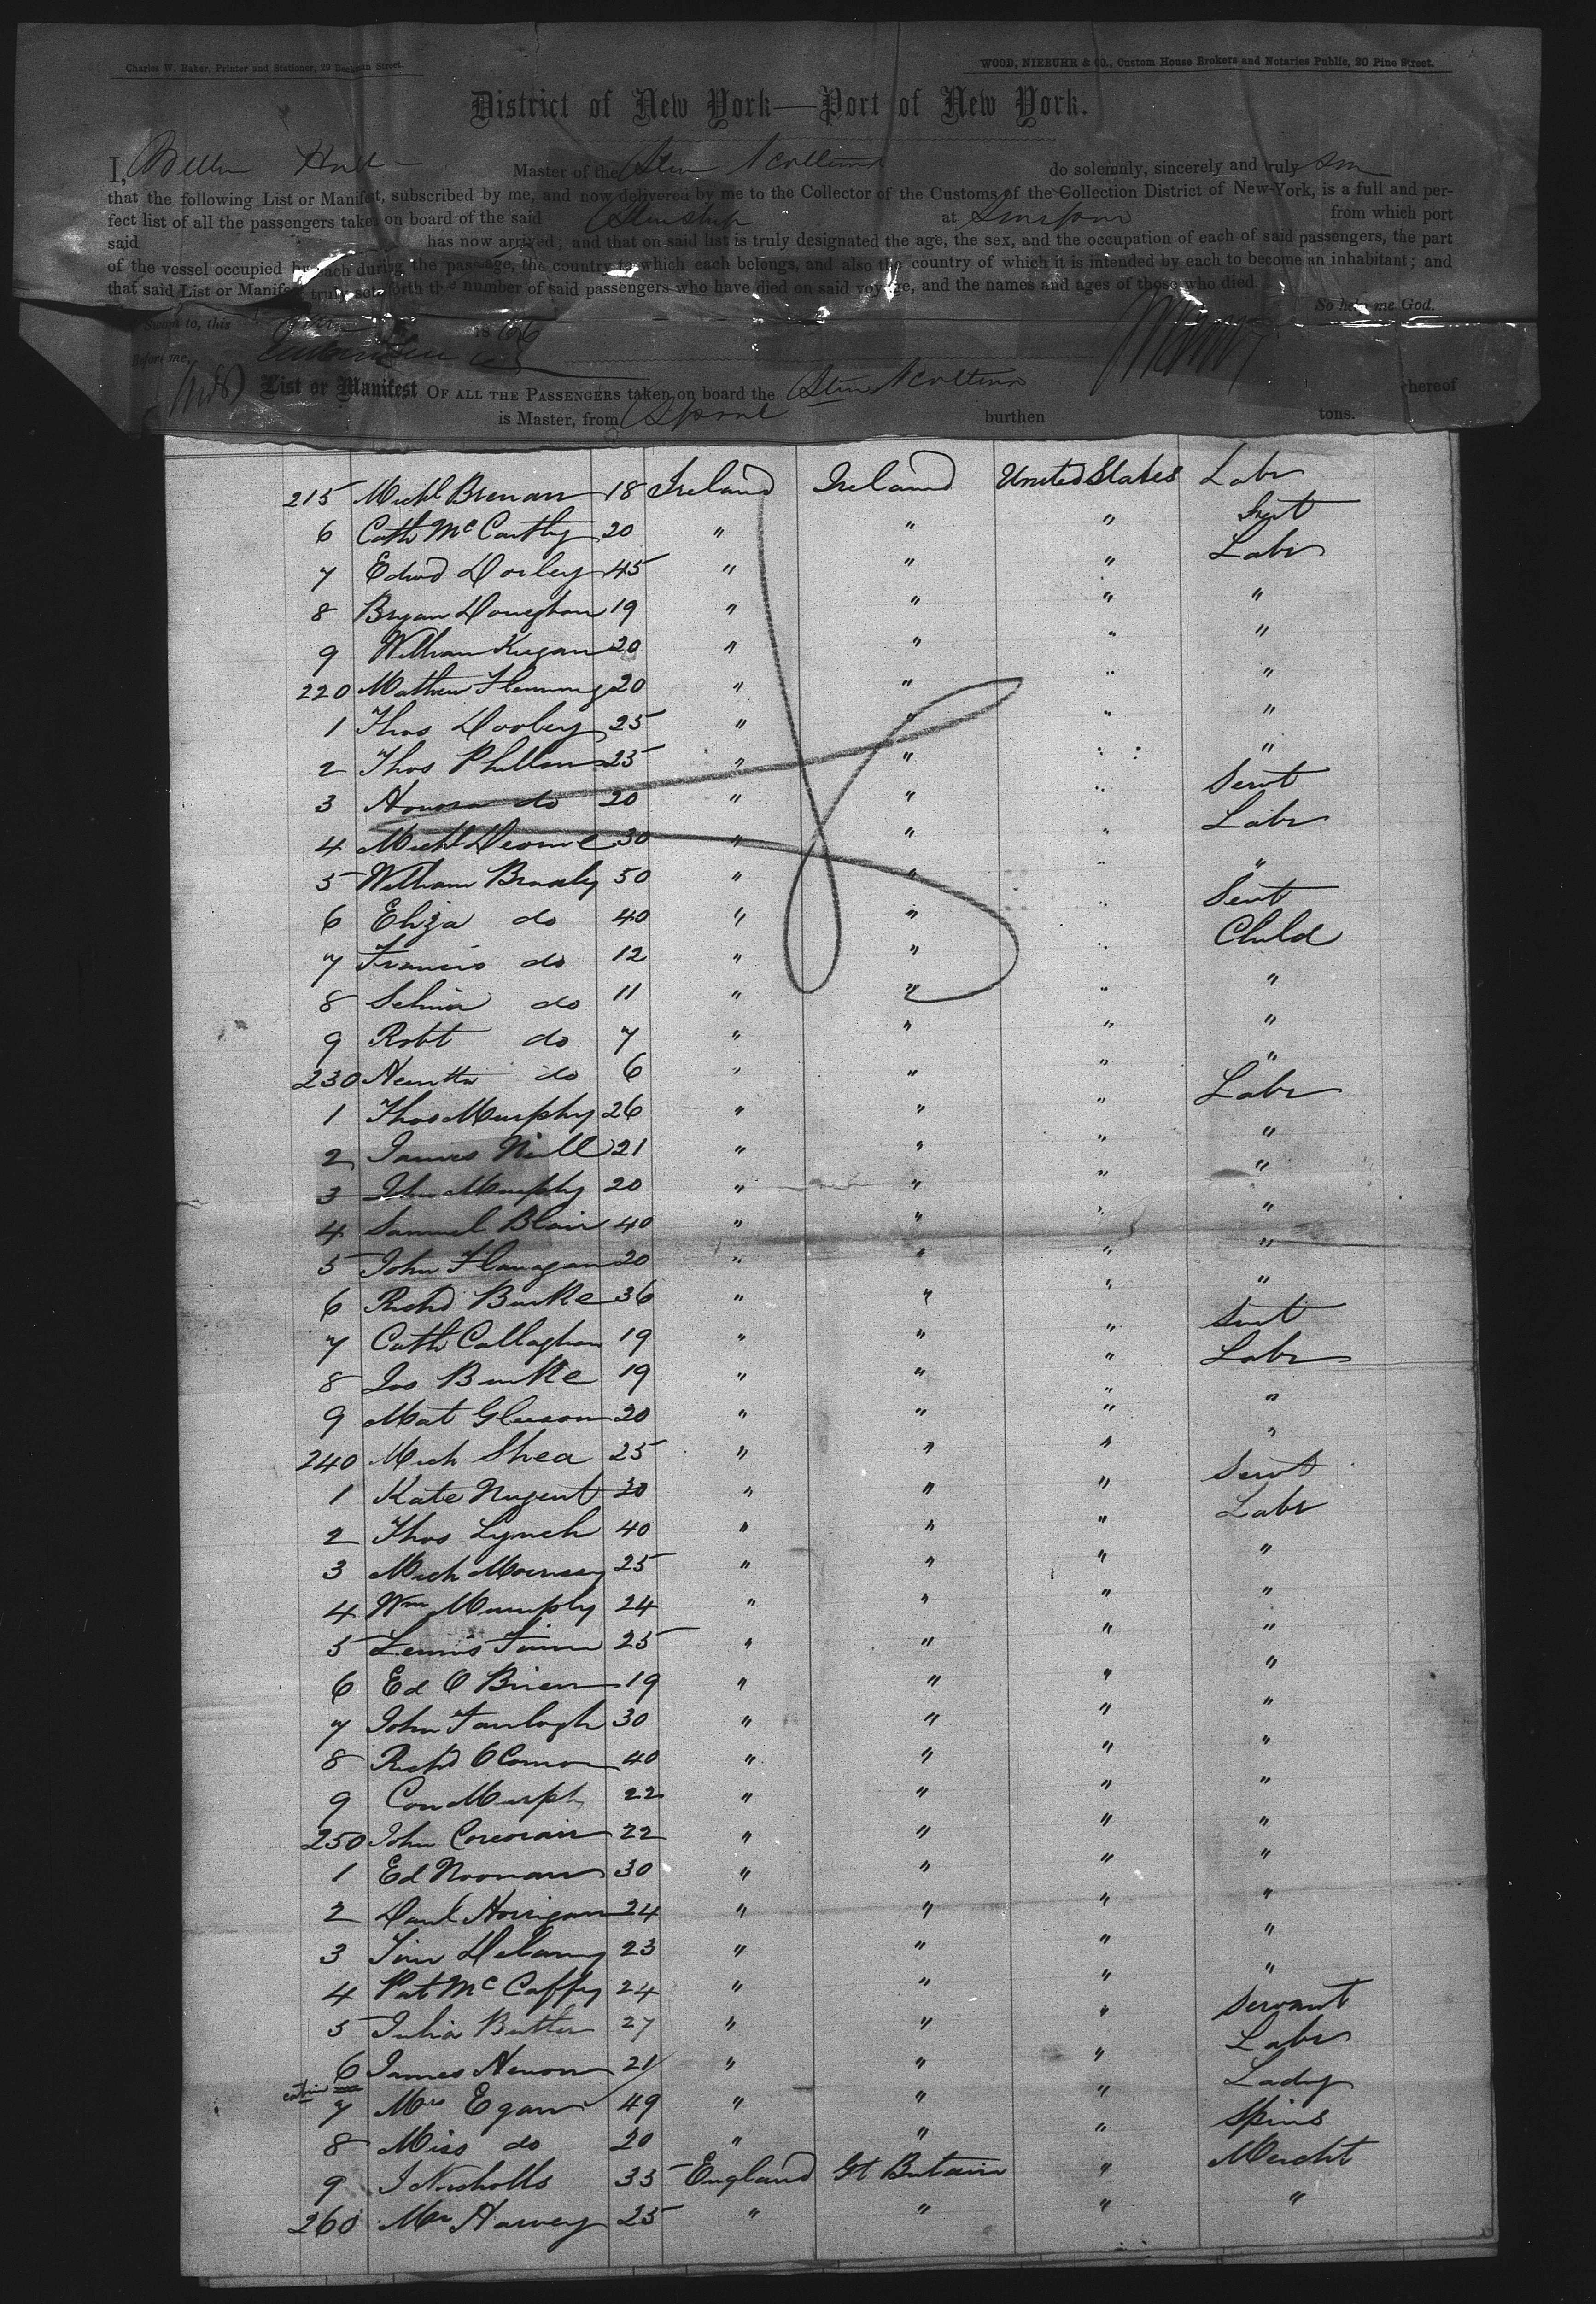 Charles W. Baker, Printer and Stationer, 29 Beekman Street.
WOOD, NIEBUHR & CO., Custom House Brokers and Notaries Public, 20 Pine Street.
District of New York—Port of New York.
I, Master of the do solemnly, sincerely and truly
that the following List or Manifest, subscribed by me, and now delivered by me to the Collector of the Customs of the Collection District of New-York, is a full and per-
fect list of all the passengers taken on board of the said at from which port
said has now arrived; and that on said list is truly designated the age, the sex, and the occupation of each of said passengers, the part
of the vessel occupied by each during the passage, the country to which each belongs, and also the country of which it is intended by each to become an inhabitant; and
that said List or Manifest truly sets forth the number of said passengers who have died on said voyage, and the names and ages of those who died.
So help me God.
Sworn to, this 1866
Before me,
List or Manifest OF ALL THE PASSENGERS taken on board the hereof
is Master, from burthen tons.
215 Michl Brenan 18 Ireland Ireland United States Labr
6 Cath McCarthy 20 " " " Servt
7 Edwd Dooley 45 " " " Labr
8 Bryan Doneghan 19 " " " "
9 William Keegan 20 " " " "
220 Mathew Flemming 20 " " " "
1 Thos Dooley 25 " " " "
2 Thos 25 " " " "
3 Honora do 20 " " " Servt
4 Michl 30 " " " Labr
5 William 50 " " " "
6 Eliza do 40 " " " Servt
7 Francis do 12 " " " Child
8 Selina do 11 " " " "
9 Robt do 7 " " " "
230 do 6 " " " "
1 Thos Murphy 26 " " " Labr
2 James Neill 21 " " " "
3 John Murphy 20 " " " "
4 Samuel Blair 40 " " " "
5 John Flanagan 20 " " " "
6 Richd Burke 36 " " " "
7 Cath Callaghan 19 " " " Servt
8 Jas Burke 19 " " " Labr
9 Mat Gleeson 20 " " " "
240 Mich Shea 25 " " " "
1 Kate Nugent 20 " " " Servt
2 Thos Lynch 40 " " " Labr
3 Mich 25 " " " "
4 Wm Murphy 24 " " " "
5 25 " " " "
6 Ed O Brien 19 " " " "
7 John 30 " " " "
8 Richd O Connor 40 " " " "
9 Con Murphy 22 " " " "
250 John Corcoran 22 " " " "
1 Ed Noonan 30 " " " "
2 Danl Horrigan 24 " " " "
3 Tim Delany 23 " " " "
4 Pat McCaffry 24 " " " "
5 Julia Butler 27 " " " Servant
6 James 21 " " " Labr
cabin 7 Mrs Egan 49 " " " Lady
8 Miss do 20 " " " Spins
9 J Nicholls 35 England Gt Britain " Mercht
260 Mr Harvey 25 " " " "